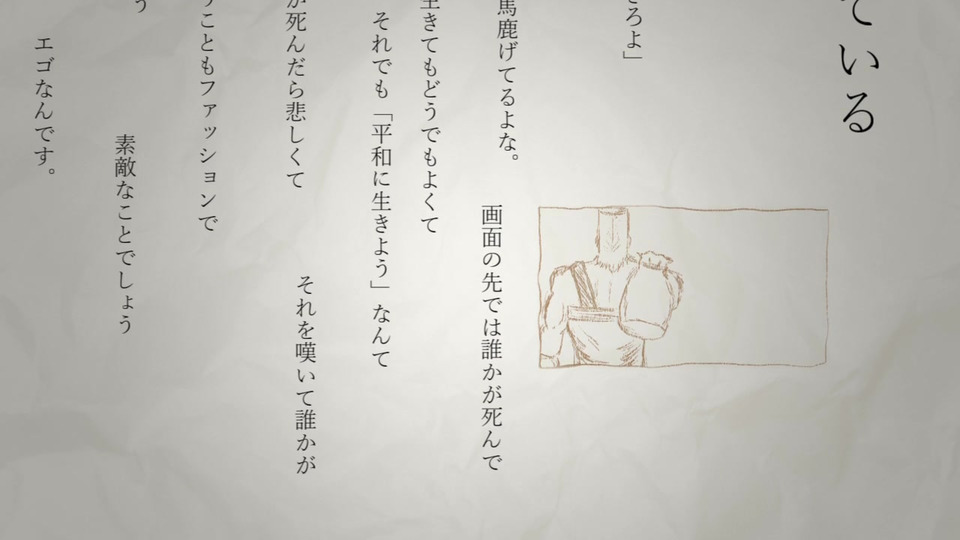 ている
ろよ」
馬鹿げてるよな。
画面の先では誰かが死んで
生きてもどうでもよくて
それでも「平和に生きよう」なんて
が死んだら悲しくて
それを嘆いて誰かが
こともファッションで
う
素敵なことでしょう
エゴなんです。